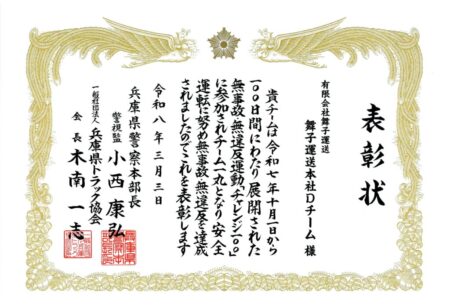 表彰状
有限会社舞子運送
舞子運送本社Dチーム 様
貴チームは令和七年十月一日から
一〇〇日間にわたり展開された
無事故無違反運動「チャレンジ一〇〇」
に参加されチーム一丸となり安全
運転に努め無事故無違反を達成
されましたのでこれを表彰します
令和八年三月三日
兵庫県警察本部長
警視監 小西康弘
一般社団法人 兵庫県トラック協会
会長 木南一志